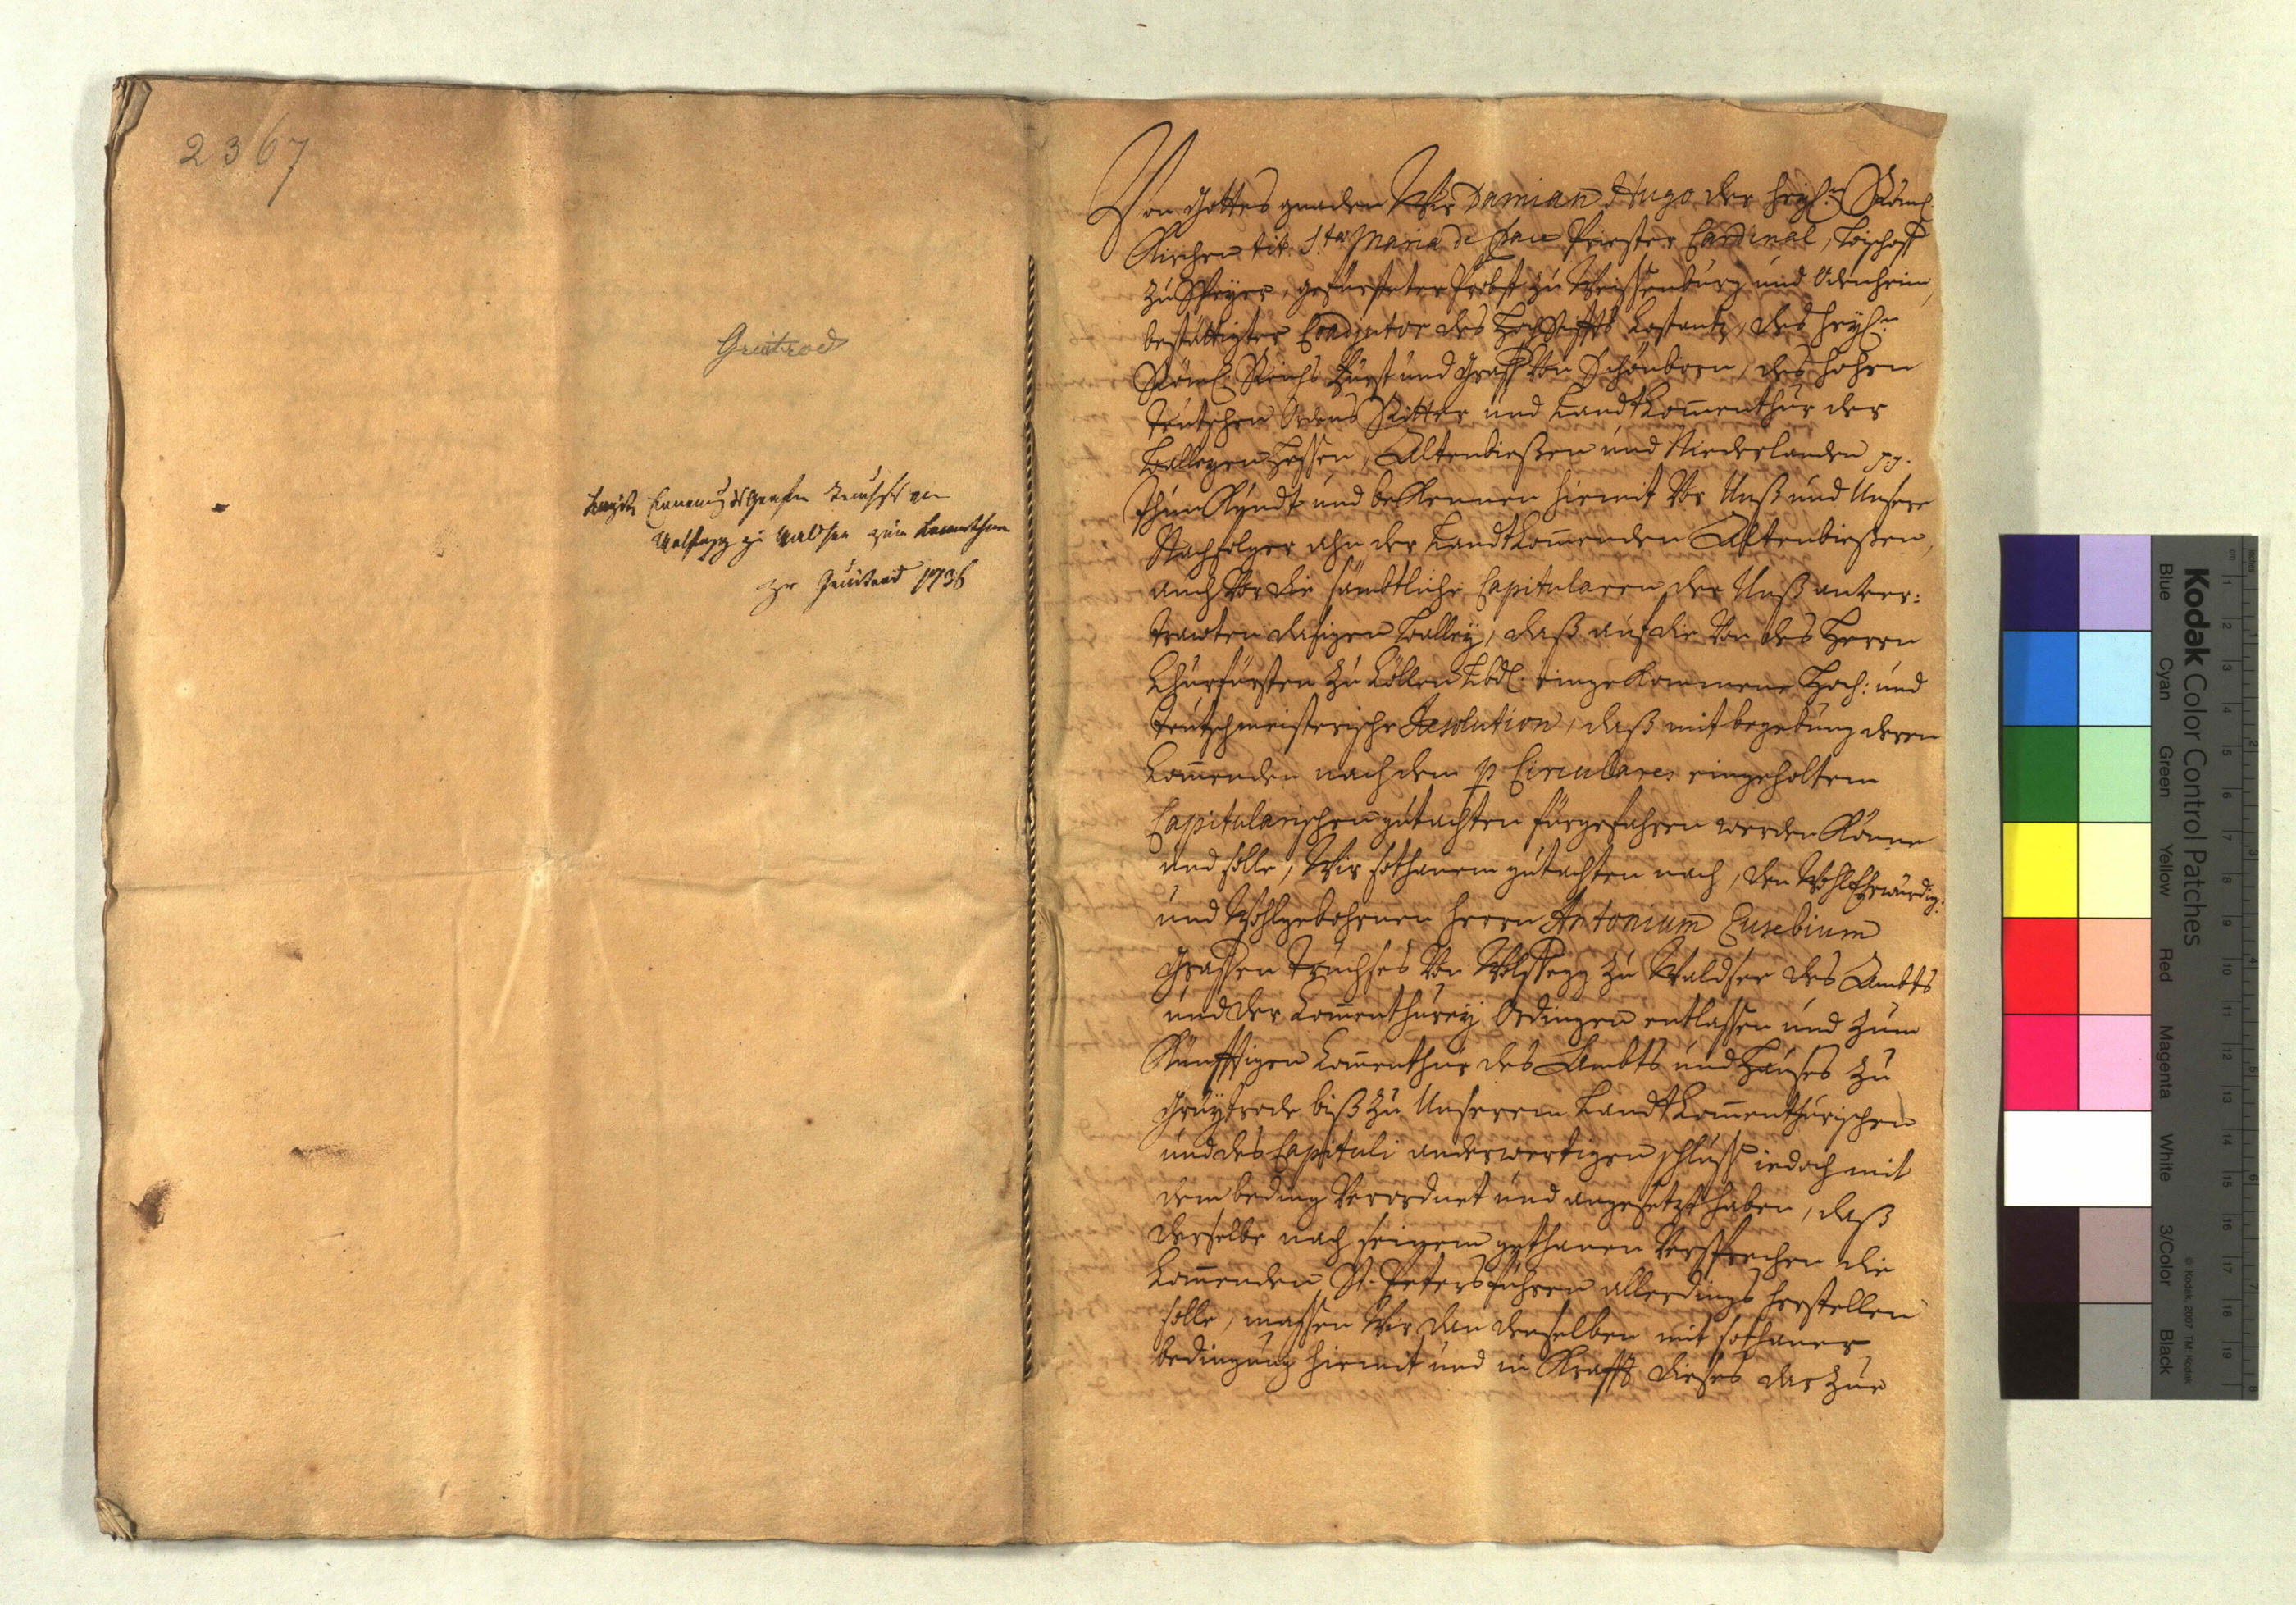 2367
Gruitrod
Grafen Truchses von
Wolfegg zu Waldsee zum
zu Gruitrod 1736
Von Gottes gnaden Wir Damian Hugo der heyl:n Röml.
Kirchen tit. S.tae Maria de Priester Cardinal, Bischoff
zu Speyer, gefürsteter Probst zu Weissenburg und Odenheim,
bestättigter Coadjutor des HochStiffts Costantz, des heyl:n
Röml. Reichs Fürst und Graff Von Schönborn, des hohen
Teutschen Ordens Ritter und Landt Com̄enthur der
Balleyen Hessen, Altenbiessen und Niederlanden pp.
Thun Kundt und beKennen hiemit Vor Unß und Unsere
Nachfolger ahn der LandtCom̄enden Altenbiessen,
auch Vor die sämbtliche Capitularen der Unß anver:
trawten dasigen Balley, daß auf die Von des Herrn
Churfürsten zu Cöllen Lbd. eingeKommene Hoch: und
Teutschmeisterische Resolution, daß mit begebung deren
Com̄enden nach dem p Circulares eingeholtem
Capitularischen gutachten fürgefahren werden Könne
und solle, Wir sothanem gutachten nach, den WohlEhrwürdig:
und Wohlgebohrnen Herrn Antonium Eusebium
Graffen Truchses Von Wolffegg zu Waldsee des Ambts
und der Com̄enthurey Ordingen entlassen und zum
Künfftigen Com̄enthur des Ambts und Hauses zu
Gruytrode biß zu Unserem Landt Com̄enthurischen
und des Capituli anderwertigen schluß iedoch mit
dem beding Verordnet und angesetzt haben, daß
derselbe nach seinem gethanen Versprechen die
Com̄enden St. Petersfuhren allerdings herstellen
solle, massen Wir dan denselben mit sothaner
bedingung hiemit und in Krafft dieses dar zue